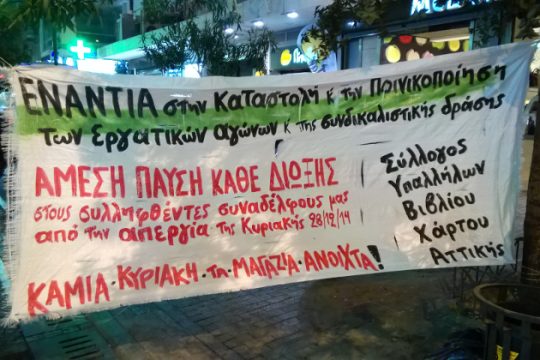 ΕΝΑΝΤΙΑ στην καταστολή κ την Ποινικοποίηση
των εργατικών αγώνων κ της συνδικαλιστικής δράσης
ΑΜΕΣΗ ΠΑΥΣΗ ΚΑΘΕ ΔΙΩΞΗΣ
στους συλληφθέντες συναδέλφους μας
από την απεργία της Κυριακής 28/12/14
ΚΑΜΙΑ·ΚΥΡΙΑΚΗ·τα·ΜΑΓΑΖΙΑ·ΑΝΟΙΧΤΑ!
Σύλλογος
Υπαλλήλων
Βιβλίου
Χάρτου
Αττικής